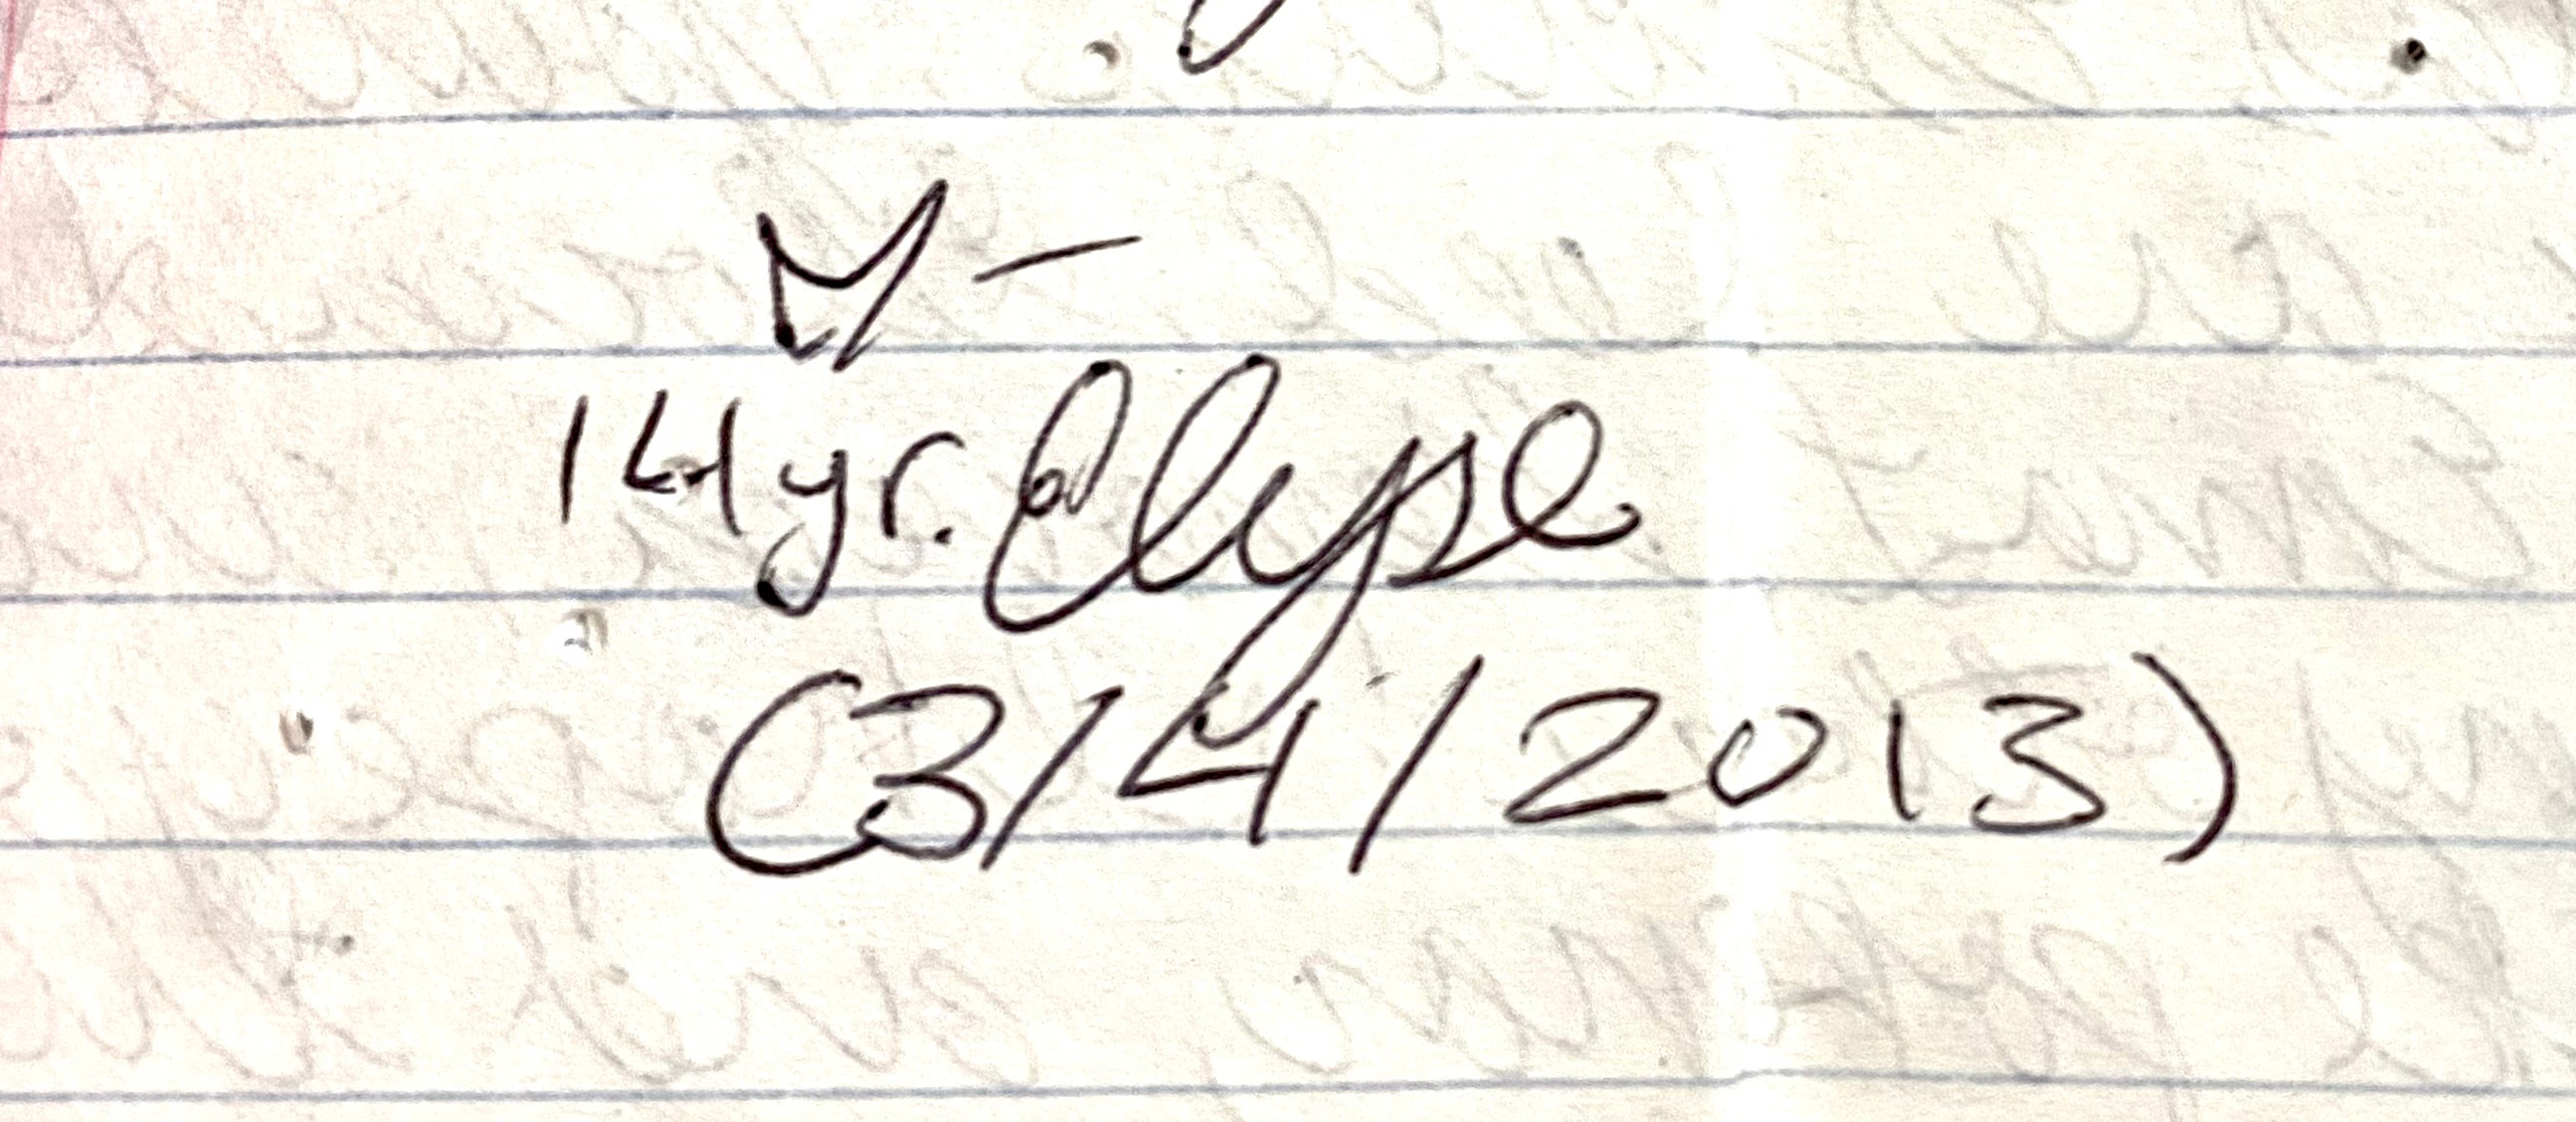 14yr. Elyse
(3/4/2013)